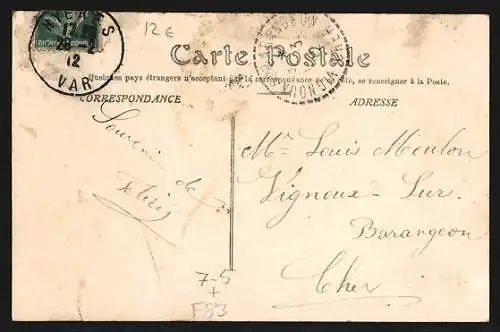 12 €
12
VAR
Carte Postale
Quelques pays étrangers n'acceptant pas la correspondance se renseigner à la Poste.
CORRESPONDANCE
ADRESSE
Souvenir de
Mr Louis Moulon
Vignoux-Sur
Barangeon
Cher
7-5
+
F83